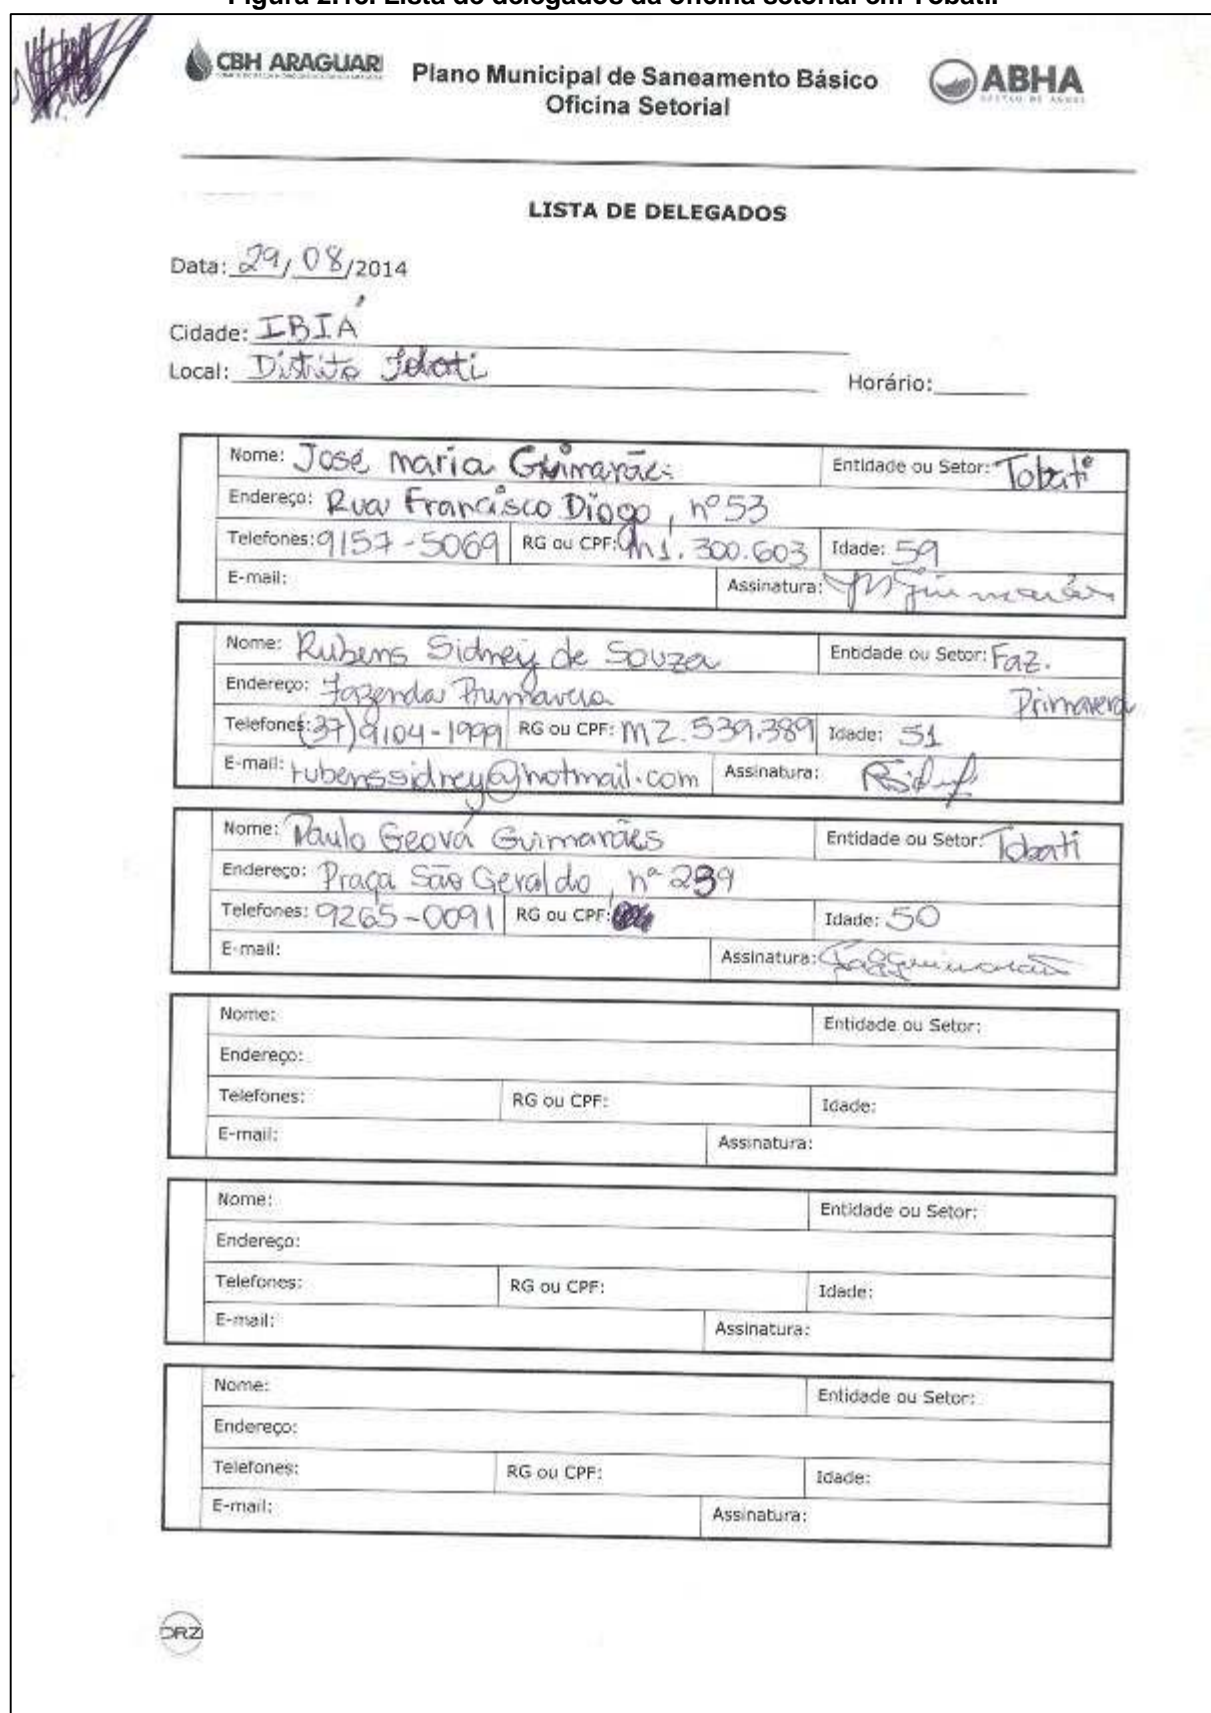 Figura 2.16: Lista de delegados da oficina setorial em Tobati.
CBH ARAGUARI
Plano Municipal de Saneamento Básico
Oficina Setorial
ABHA
GESTÃO DE ÁGUAS
LISTA DE DELEGADOS
Data: 29/08/2014
Cidade: IBIÁ
Local: Distrito Tobati
Horário:
Nome: José maria Guimarães Entidade ou Setor: Tobati
Endereço: Rua Francisco Diogo, nº 53
Telefones: 9157-5069 RG ou CPF: M1.300.603 Idade: 59
E-mail: Assinatura: Guimarães
Nome: Rubens Sidney de Souza Entidade ou Setor: Faz. Primavera
Endereço: Fazenda Primavera
Telefones: (37)9104-1999 RG ou CPF: M2.539.389 Idade: 51
E-mail: rubenssidney@hotmail.com Assinatura:
Nome: Paulo Geová Guimarães Entidade ou Setor: Tobati
Endereço: Praça São Geraldo, nº 239
Telefones: 9265-0091 RG ou CPF: Idade: 50
E-mail: Assinatura: Guimarães
Nome: Entidade ou Setor:
Endereço:
Telefones: RG ou CPF: Idade:
E-mail: Assinatura:
Nome: Entidade ou Setor:
Endereço:
Telefones: RG ou CPF: Idade:
E-mail: Assinatura:
Nome: Entidade ou Setor:
Endereço:
Telefones: RG ou CPF: Idade:
E-mail: Assinatura:
DRZ